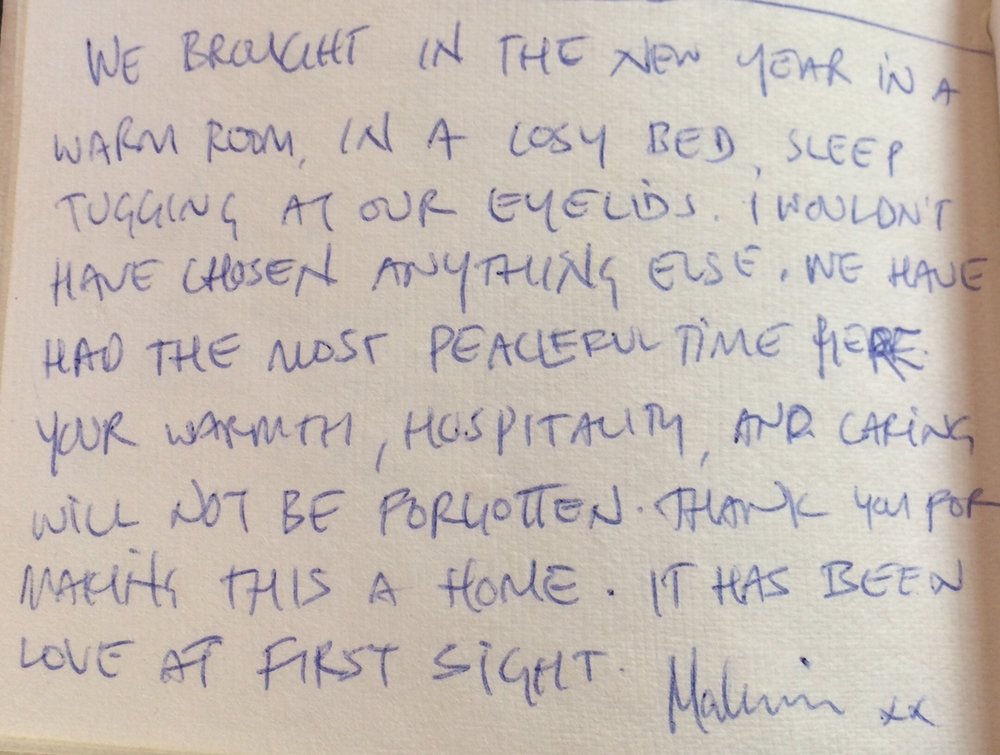 WE BROUGHT IN THE NEW YEAR IN A
WARM ROOM, IN A COSY BED, SLEEP
TUGGING AT OUR EYELIDS. I WOULDN'T
HAVE CHOSEN ANYTHING ELSE. WE HAVE
HAD THE MOST PEACEFUL TIME HERE.
YOUR WARMTH, HOSPITALITY, AND CARING
WILL NOT BE FORGOTTEN. THANK YOU FOR
MAKING THIS A HOME. IT HAS BEEN
LOVE AT FIRST SIGHT.
xx